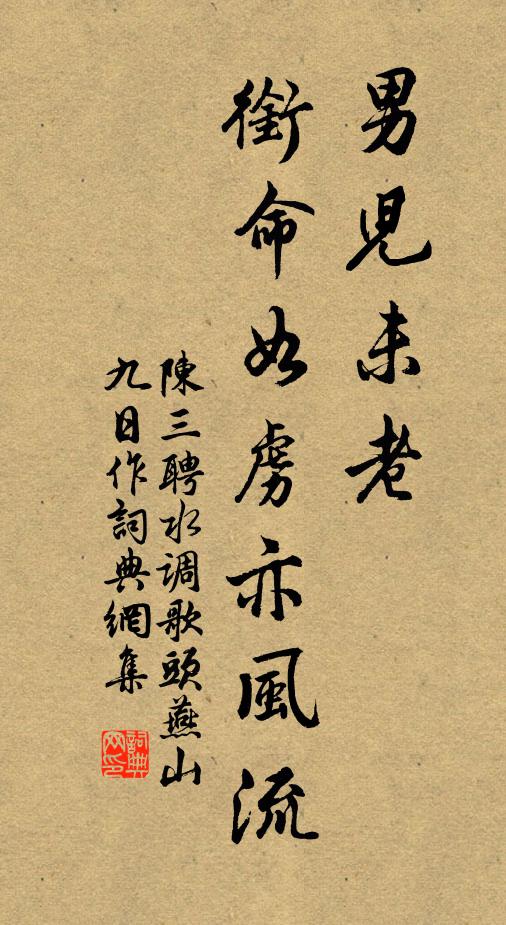 男兒未老
銜命如虜亦風流
陳三聘水调歌頭燕山
九日作詞典網集
詞典网印